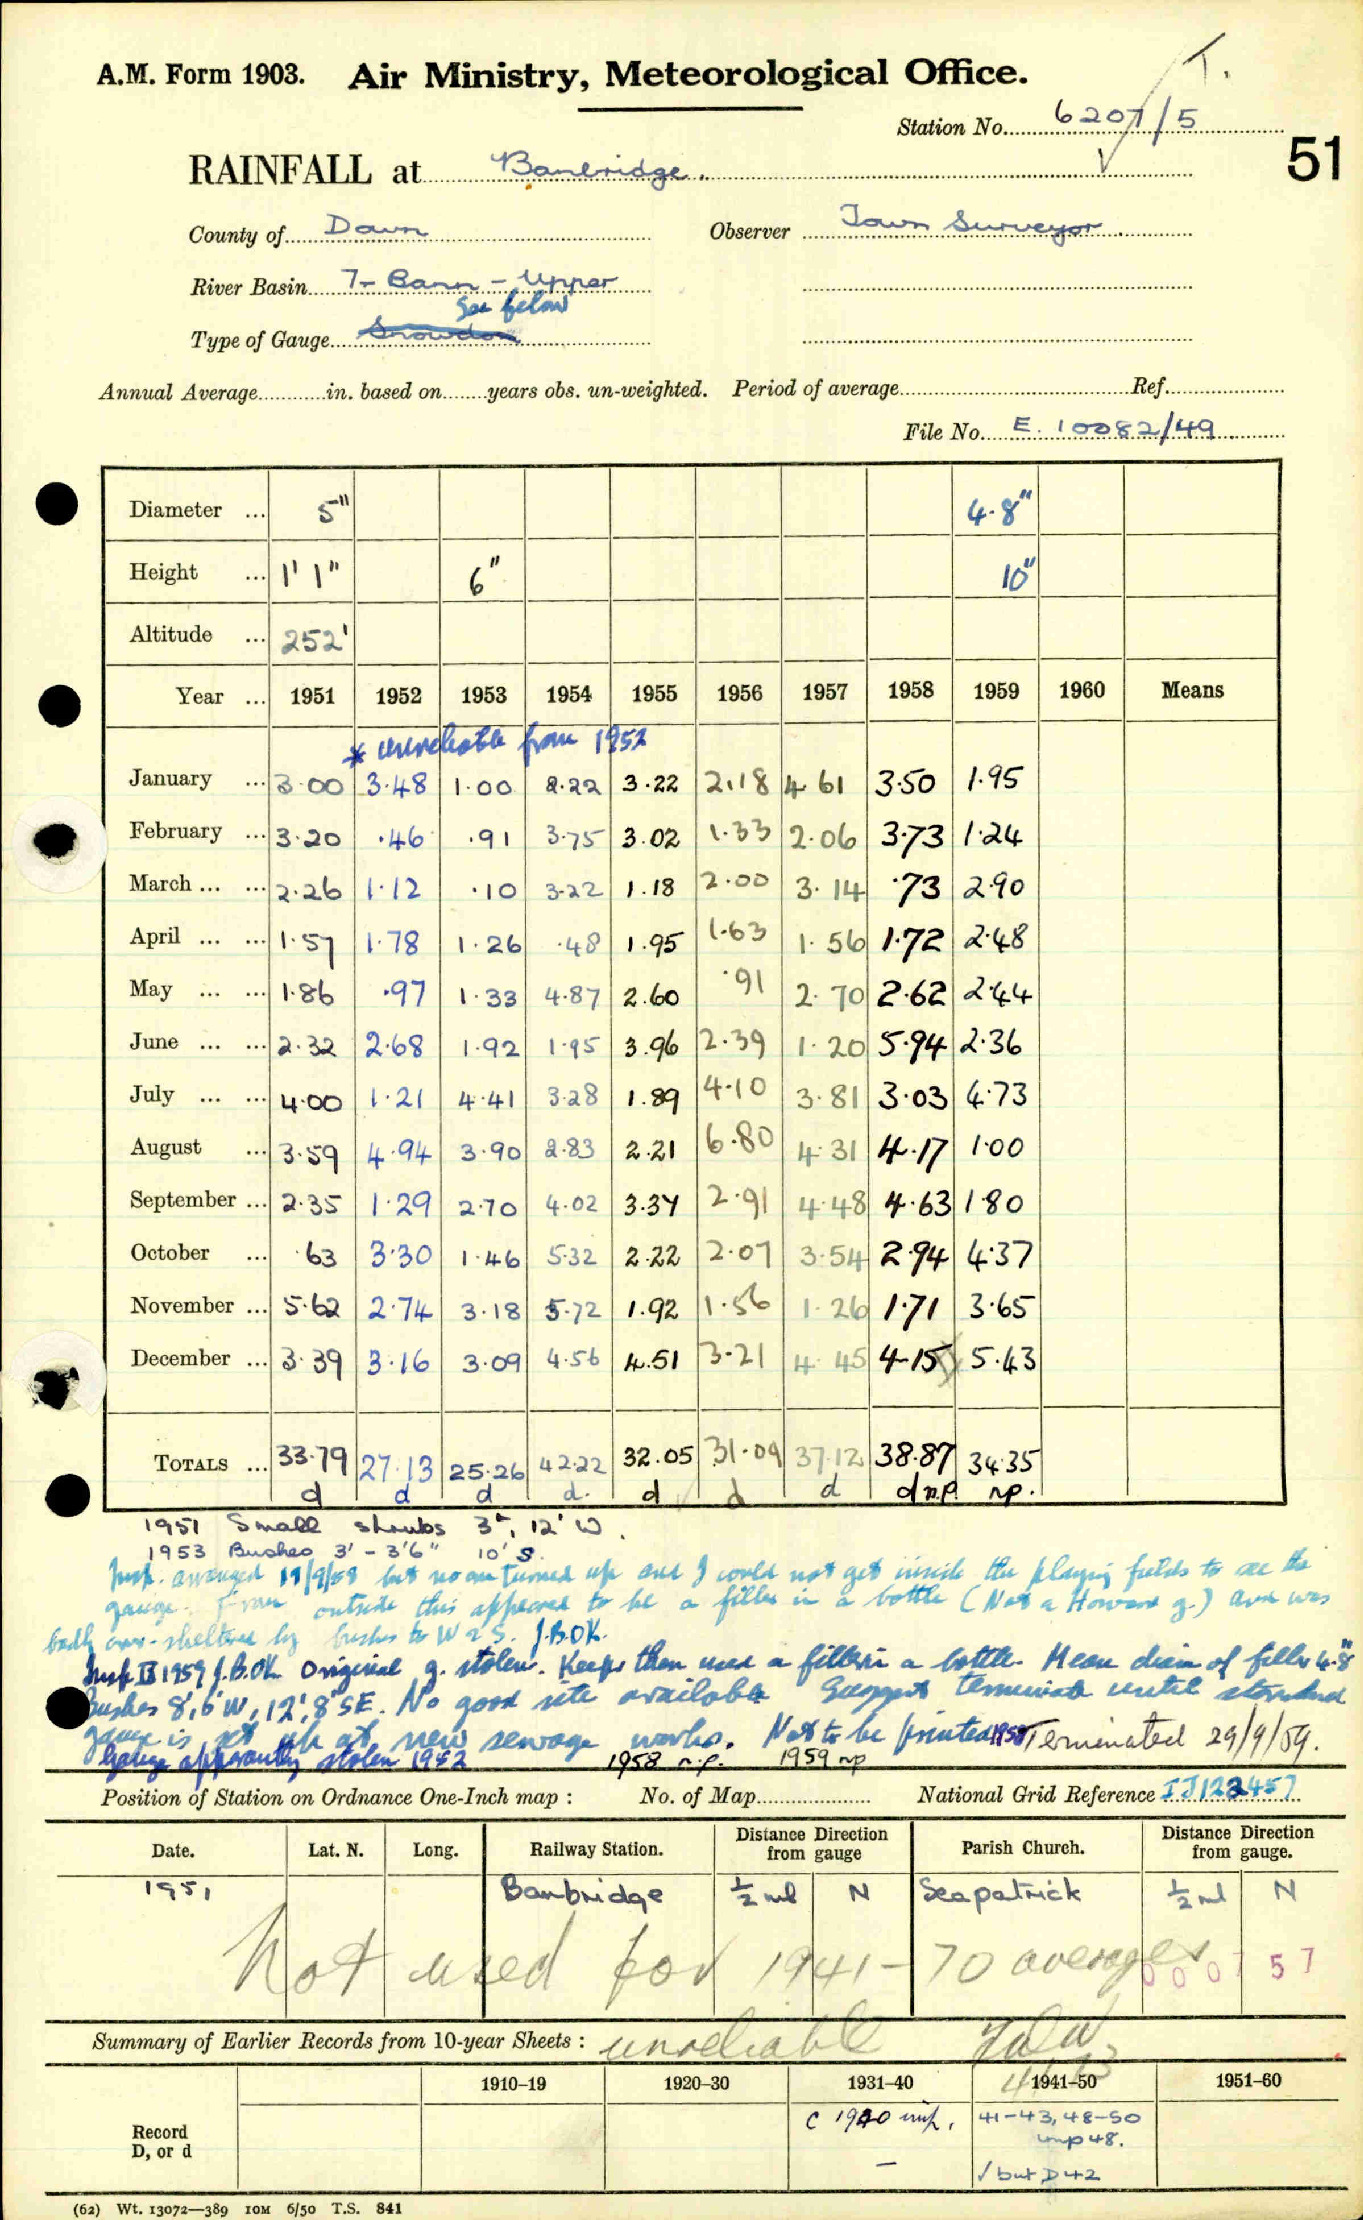 T.
A.M. Form 1903. Air Ministry, Meteorological Office.
Station No. 6207/5
51
RAINFALL at Banbridge.
County of Down Observer Town Surveyor
River Basin 7- Bann - Upper
See below
Type of Gauge Snowdon
Annual Average in. based on years obs. un-weighted. Period of average Ref.
File No. E. 10082/49
Diameter ... 5" 4.8"
Height ... 1' 1" 6" 10"
Altitude ... 252'
Year ... 1951 1952 1953 1954 1955 1956 1957 1958 1959 1960 Means
* unreliable from 1952
January ... 3.00 3.48 1.00 2.22 3.22 2.18 4.61 3.50 1.95
February ... 3.20 .46 .91 3.75 3.02 1.33 2.06 3.73 1.24
March ... ... 2.26 1.12 .10 3.22 1.18 2.00 3.14 .73 2.90
April ... ... 1.57 1.78 1.26 .48 1.95 1.63 1.56 1.72 2.48
May ... ... 1.86 .97 1.33 4.87 2.60 .91 2.70 2.62 2.44
June ... ... 2.32 2.68 1.92 1.95 3.96 2.39 1.20 5.94 2.36
July ... ... 4.00 1.21 4.41 3.28 1.89 4.10 3.81 3.03 4.73
August ... 3.59 4.94 3.90 2.83 2.21 6.80 4.31 4.17 1.00
September ... 2.35 1.29 2.70 4.02 3.37 2.91 4.48 4.63 1.80
October ... .63 3.30 1.46 5.32 2.22 2.07 3.54 2.94 4.37
November ... 5.62 2.74 3.18 5.72 1.92 1.56 1.26 1.71 3.65
December ... 3.39 3.16 3.09 4.56 4.51 3.21 4.45 4.15 5.43
TOTALS ... 33.79 27.13 25.26 42.22 32.05 31.09 37.12 38.87 34.35
d d d d. d d d d n.p. np.
1951 Small shrubs 3', 12' W.
1953 Bushes 3' - 3'6" 10' S.
Insp. arranged 19/9/58 but no one turned up and I could not get inside the playing fields to see the
gauge. From outside this appeared to be a filler in a bottle (Not a Howard g.) and was
badly over-sheltered by bushes to W & S. J.B.OK.
Insp 1959 J.B.OK. Original g. stolen. Keeper then used a filler in a bottle. Mean diam of filler 4.8"
Bushes 8', 6'W, 12', 8'SE. No good site available Suggest terminate until standard
gauge is set up at new sewage works. Not to be printed 1958 Terminated 29/9/59.
Gauge apparently stolen 1952 1958 n.p. 1959 np
Position of Station on Ordnance One-Inch map : No. of Map National Grid Reference IJ 122457
Date. Lat. N. Long. Railway Station. Distance from Direction gauge Parish Church. Distance from Direction gauge.
1951 Banbridge ½ ml N Seapatrick ½ ml N
Not used for 1941-70 averages
000757
Summary of Earlier Records from 10-year Sheets : unreliable
1910-19 1920-30 1931-40 1941-50 1951-60
Record
D, or d
c 1940 imp. 41-43, 48-50
imp 48.
- √ but D42
(62) Wt. 13072—389 10M 6/50 T.S. 841